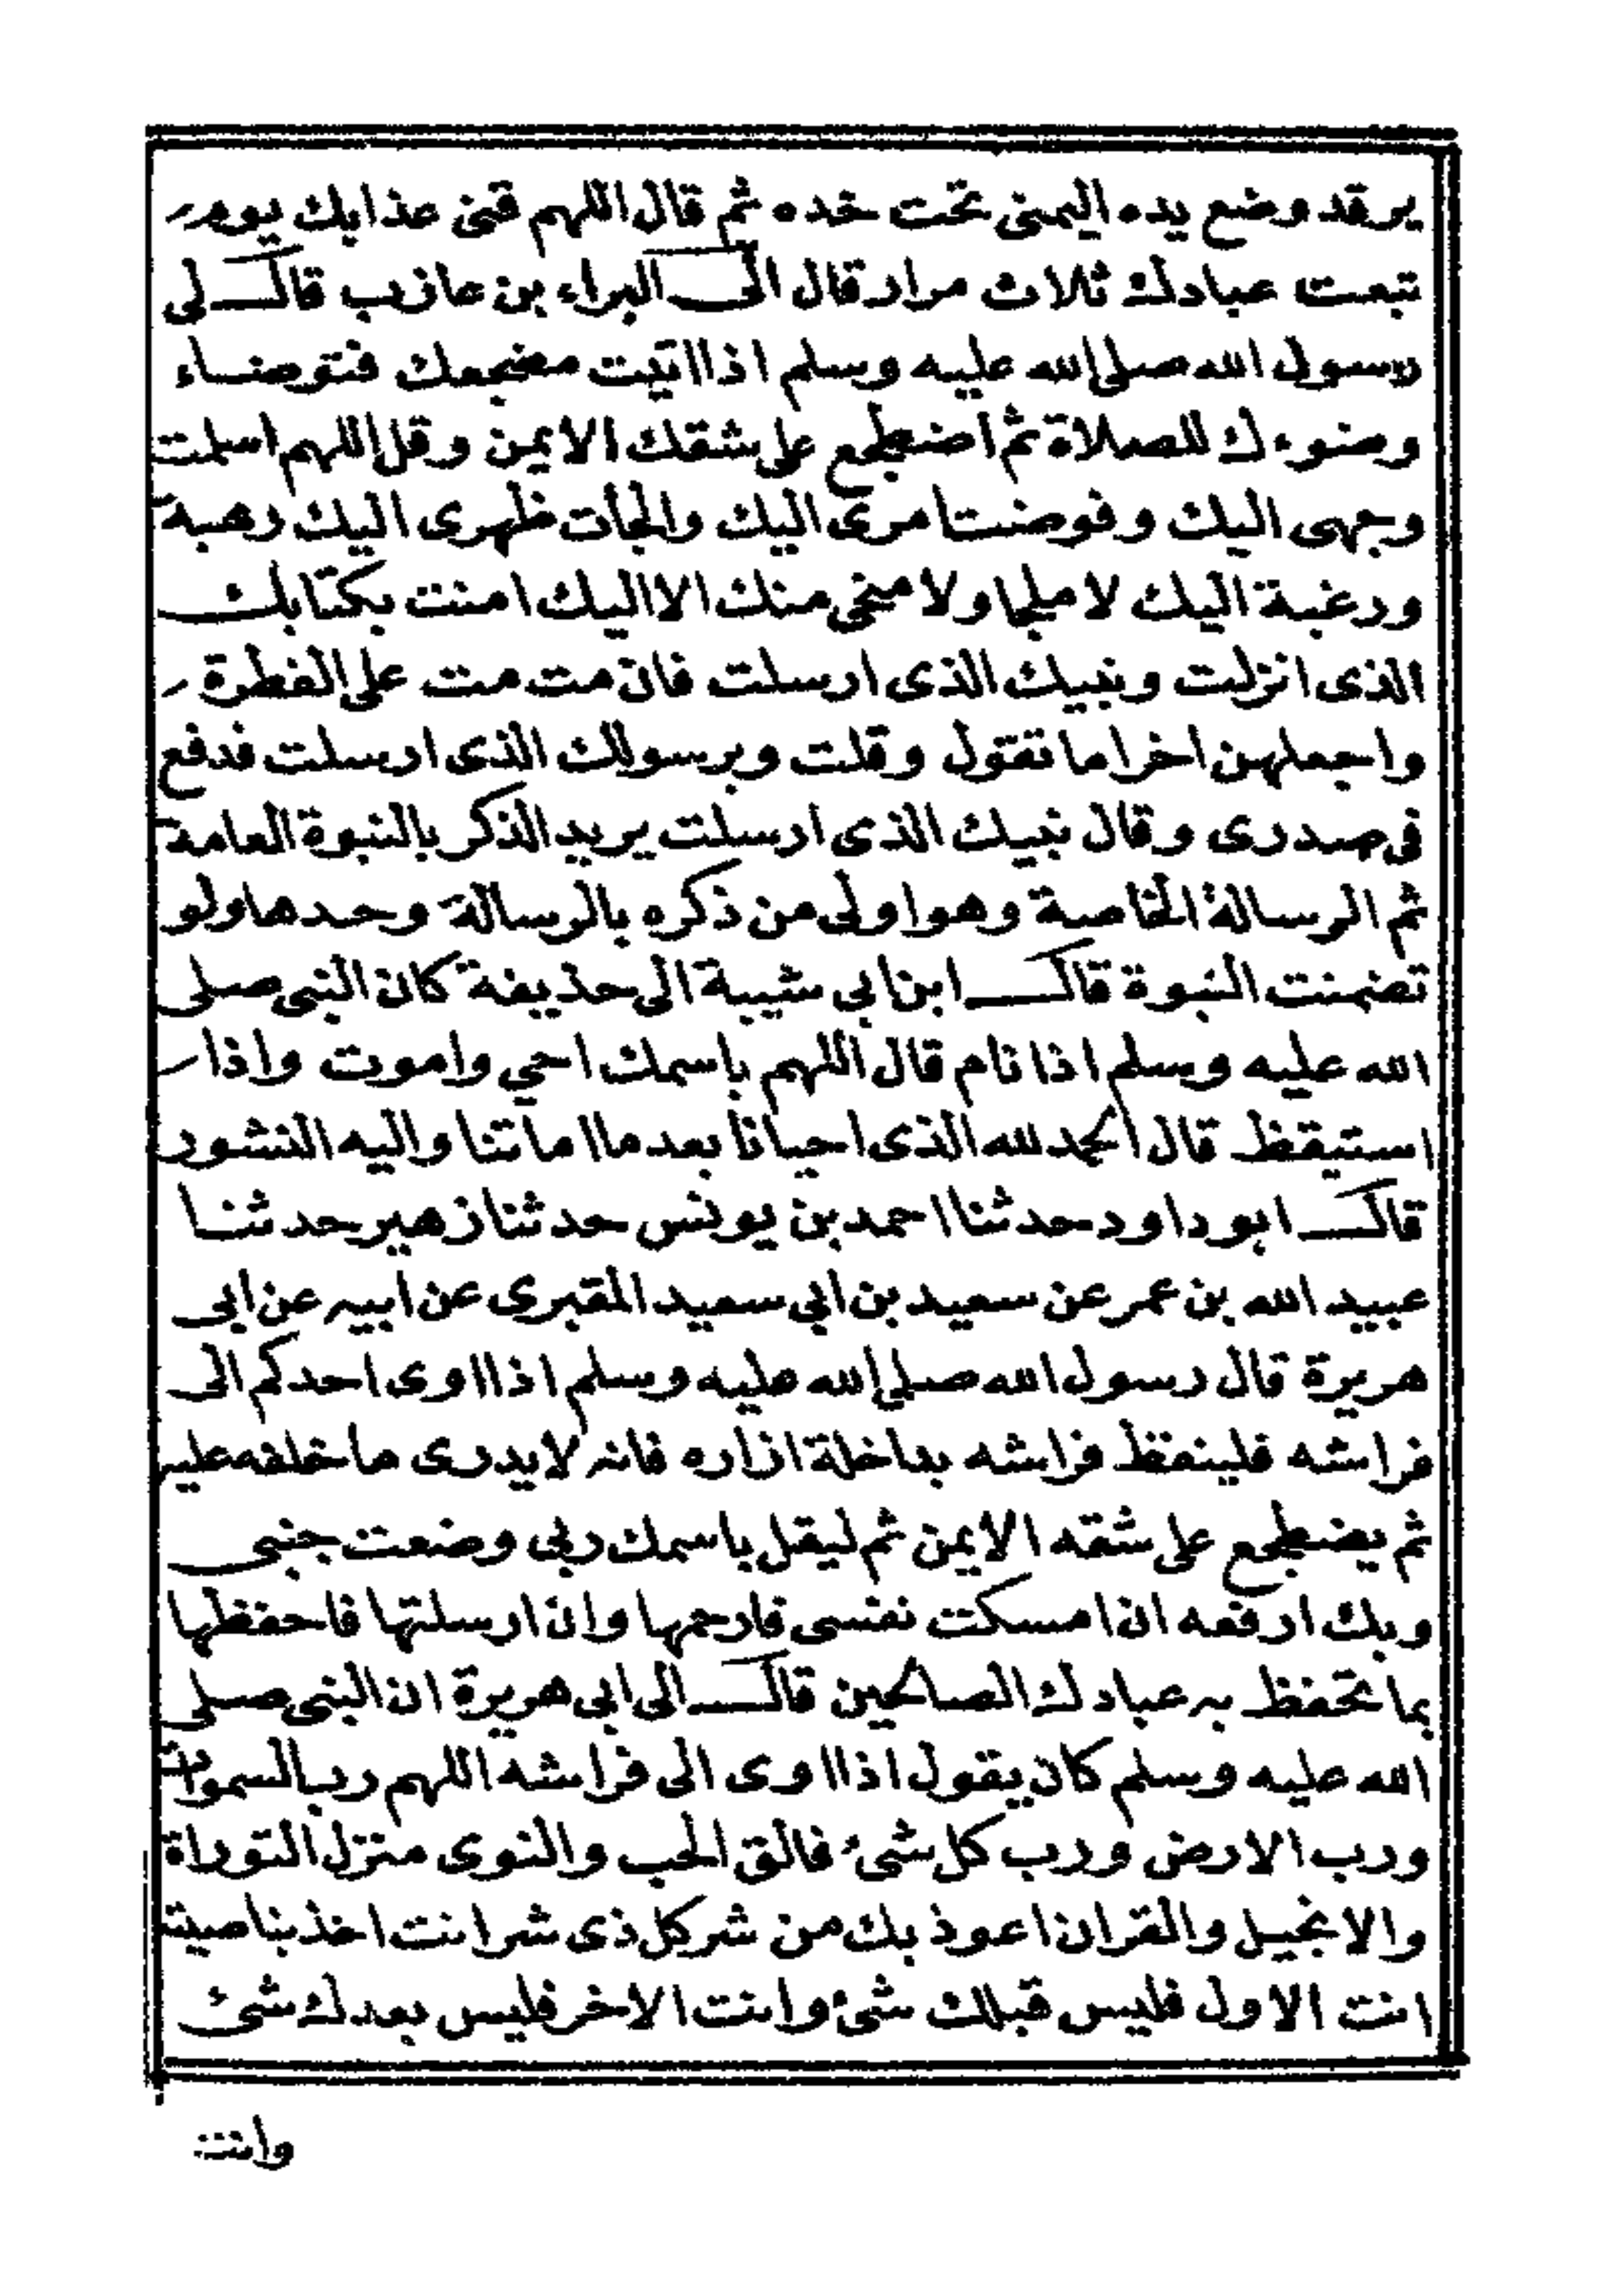 يرقد وضع يده اليمنى تحت خده ثم قال اللهم قنى عذابك يوم
تبعت عبادك ثلاث مرار قال الى البراء بن عازب قال لى
رسول الله صلى الله عليه وسلم اذا اتيت مضجعك فتوضاء
وضوءك للصلاة ثم اضطجع على شقك الايمن وقل اللهم اسلمت
وجهى اليك وفوضت امرى اليك والجأت ظهرى اليك رهبة
ورغبة اليك لا ملجا ولا منجى منك الا اليك امنت بكتابك
الذى انزلت ونبيك الذى ارسلت فان مت مت على الفطرة
واجعلهن اخر ما تقول وقلت وبرسولك الذى ارسلت فدفع
فى صدرى وقال نبيك الذى ارسلت يريد الذكر بالنبوة العامة
ثم الرسالة الخاصة وهو اولى من ذكره بالرسالة وحدها ولو
تضمنت النبوة قال ابن ابي شيبة الى حذيفة كان النبى صلى
الله عليه وسلم اذا نام قال اللهم باسمك احيي واموت واذا
استيقظ قال الحمد لله الذى احيانا بعد ما اماتنا واليه النشور
قال ابو داود حدثنا احمد بن يونس حدثنا زهير حدثنا
عبيد الله بن عمر عن سعيد بن ابي سعيد المقبرى عن ابيه عن ابى
هريرة قال رسول الله صلى الله عليه وسلم اذا اوى احدكم الى
فراشه فلينفظ فراشه بداخلة ازاره فانه لا يدرى ما خلفه عليه
ثم يضطجع على شقه الايمن ثم ليقل باسمك ربى وضعت جنبى
وبك ارفعه ان امسكت نفسى فارحمها وان ارسلتها فاحفظها
بما تحفظ به عبادك الصالحين قال الى ابى هريرة ان النبى صلى
الله عليه وسلم كان يقول اذا اوى الى فراشه اللهم رب السموات
ورب الارض ورب كل شئ فالق الحب والنوى منزل التوراة
والانجيل والقران اعوذ بك من شر كل ذى شر انت اخذ بناصيته
انت الاول فليس قبلك شئ وانت الاخر فليس بعدك شئ
وانت